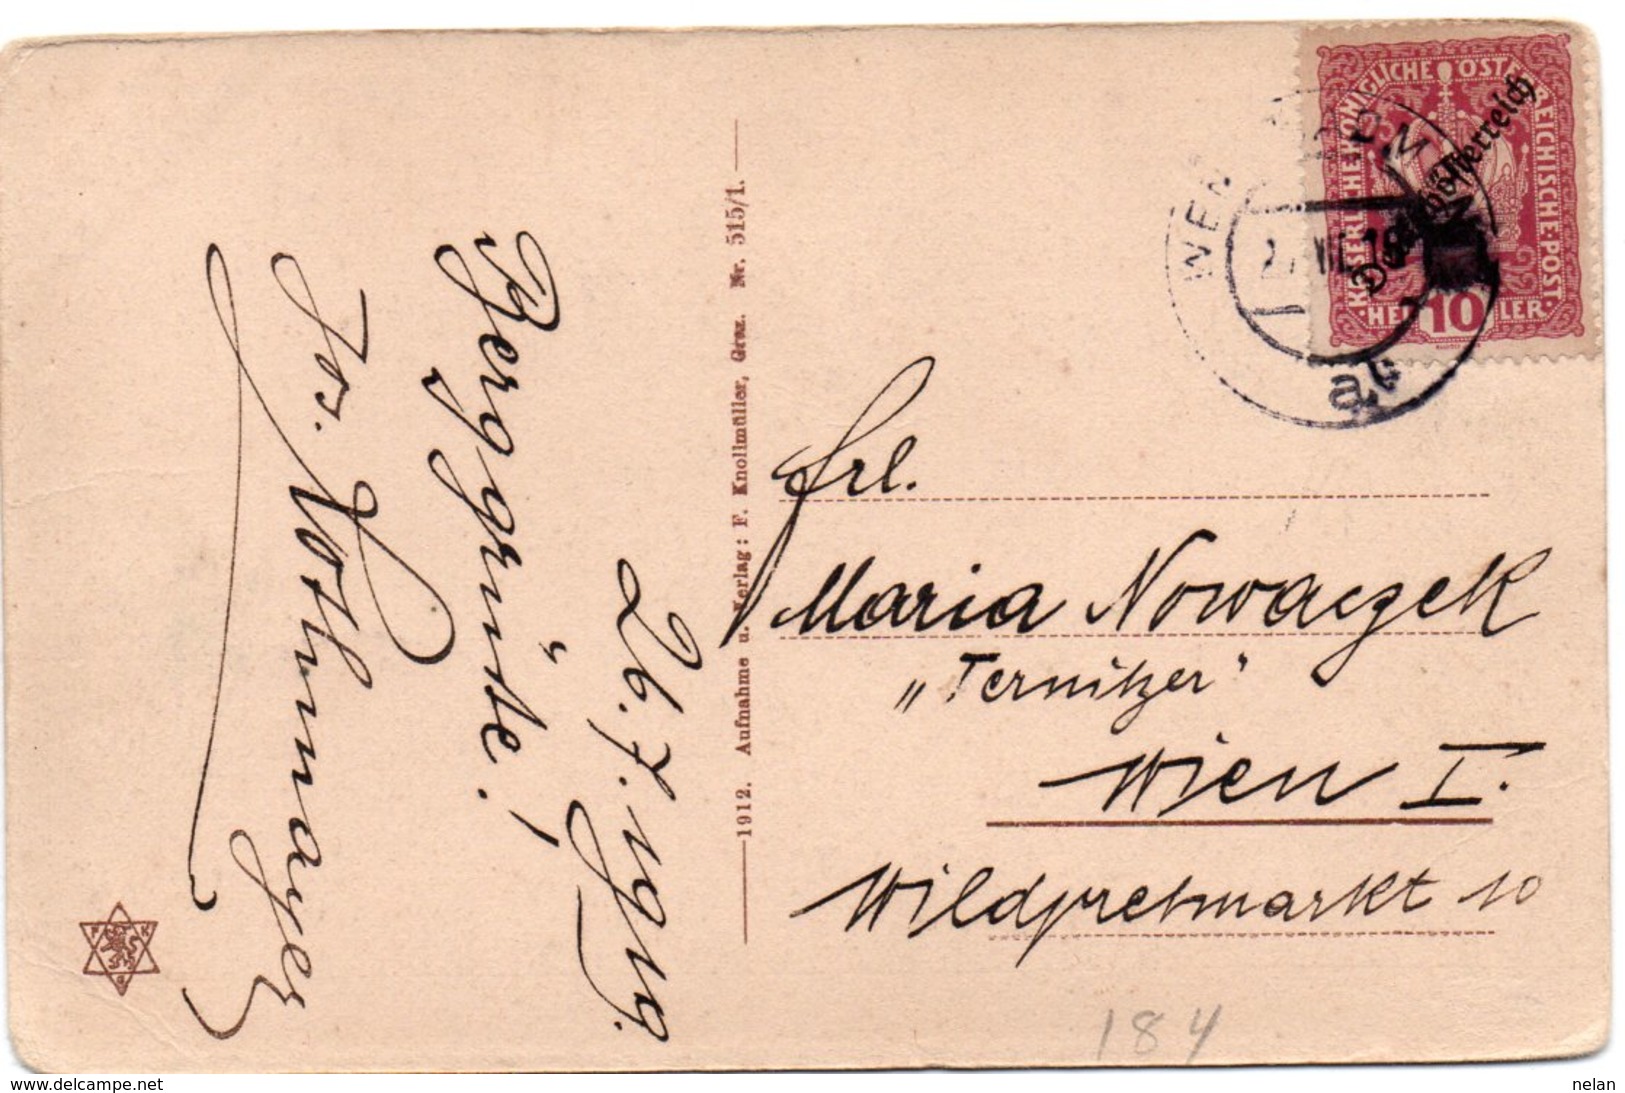 26. 7. 1919.
Berggrüße!
Jos. Rothmayer
1912. Aufnahme u. Verlag: F. Knollmüller, Graz. Nr. 515/1.
F K
G
KAISERLICHE KÖNIGLICHE ÖSTERREICHISCHE POST
HELLER
10
Deutschösterreich
Frl.
Maria Nowaczek
„Ternitzer"
Wien I.
Wildpretmarkt 10
184
www.delcampe.net
nelan